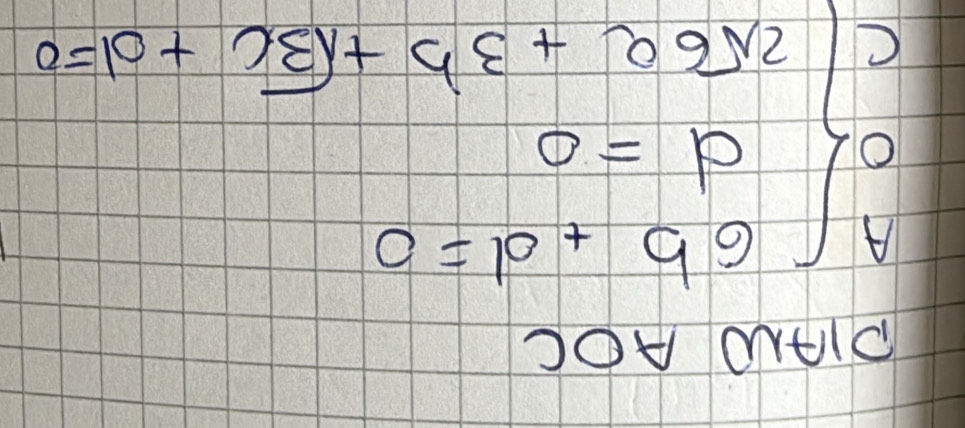 PIANO AOC
A { 6b + d = 0
O { d = 0
C { 2√6a + 3b + √3c + d = 0